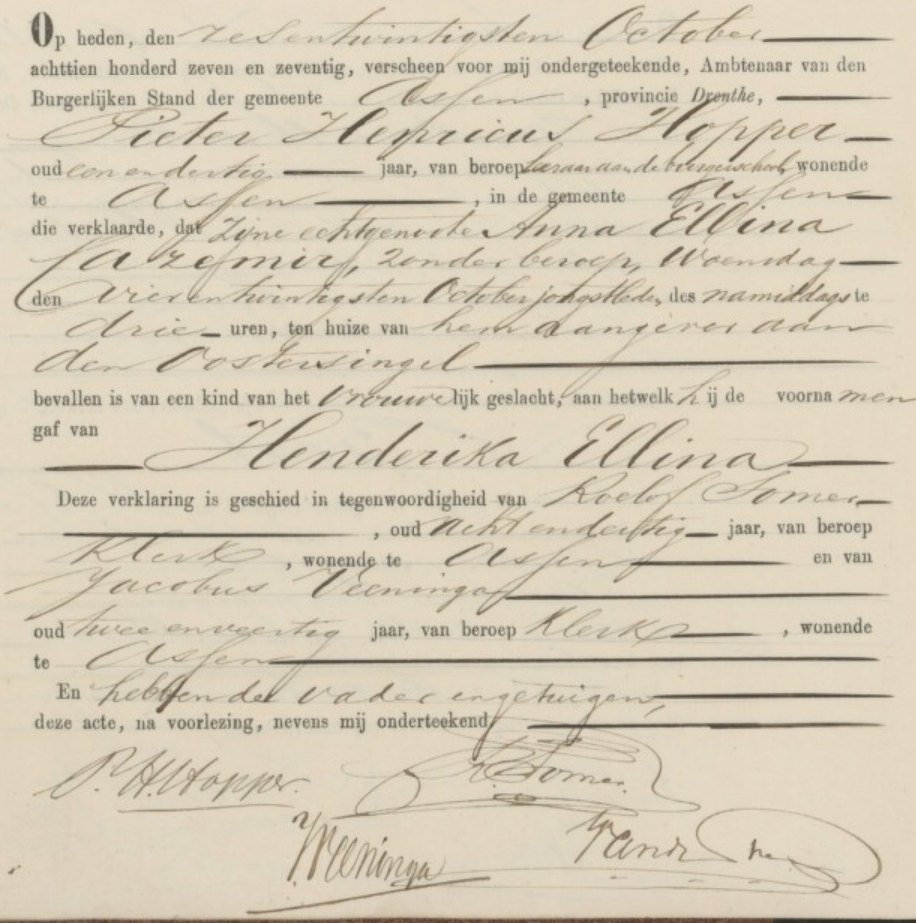 Op heden, den zesentwintigsten October
achttien honderd zeven en zeventig, verscheen voor mij ondergeteekende, Ambtenaar van den
Burgerlijken Stand der gemeente Assen, provincie Drenthe,
Pieter Henricus Hopper
oud eenendertig jaar, van beroep Leeraar aan de burgerschool, wonende
te Assen, in de gemeente Assen
die verklaarde, dat zijne echtgenoote Anna Ellina
Cazemir, zonder beroep, Woensdag
den vierentwintigsten October jongstleden des namiddags te
drie uren, ten huize van hem aangever aan
den Oostersingel
bevallen is van een kind van het Vrouwelijk geslacht, aan hetwelk hij de voornamen
gaf van
Henderika Ellina
Deze verklaring is geschied in tegenwoordigheid van Roelof Somer
, oud achtendertig jaar, van beroep
Klerk, wonende te Assen en van
Jacobus Veeninga
oud twee en veertig jaar, van beroep Klerk, wonende
te Assen
En hebben de vader en getuigen,
deze acte, na voorlezing, nevens mij onderteekend.
P. H. Hopper. R. Somer.
J. Veeninga